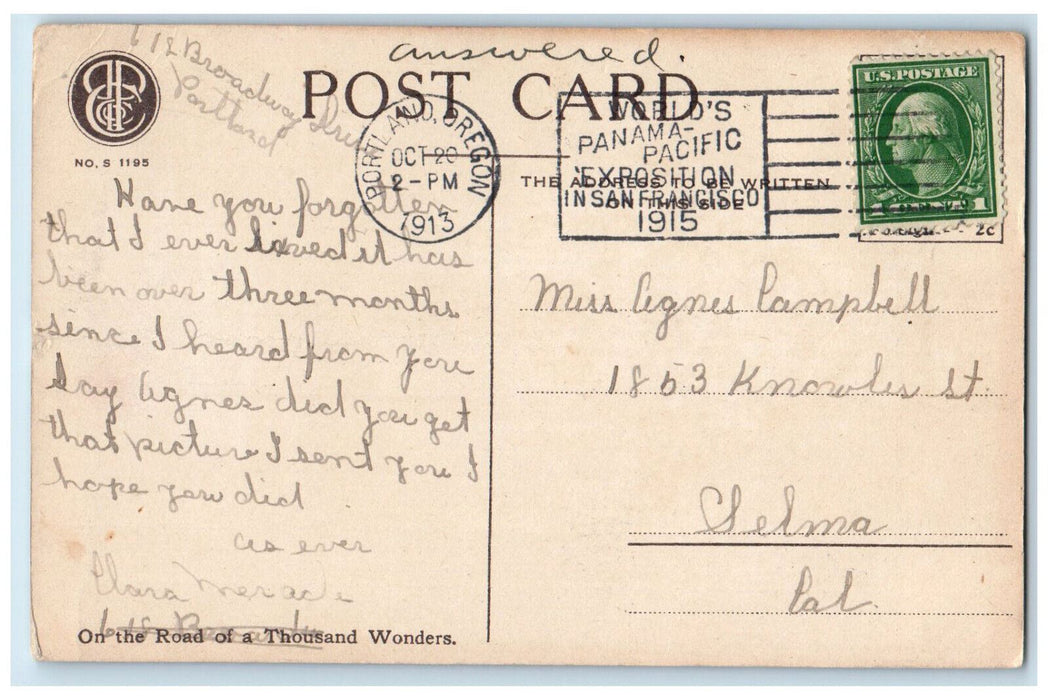 answered.
612 Broadway
Portland
POST CARD
NO. S 1195
PORTLAND, OREGON
OCT 20
2-PM
1913
WORLD'S
PANAMA-
PACIFIC
EXPOSITION
IN SAN FRANCISCO
1915
U.S. POSTAGE
1 1
2c
THE ADDRESS TO BE WRITTEN
ON THIS SIDE
Have you forgotten
that I ever lived it has
been over three months
since I heard from you
say Agnes did you get
that picture I sent you I
hope you did
as ever
Clara
618
On the Road of a Thousand Wonders.
Miss Agnes Campbell
1853 Knowles St.
Selma
Cal.